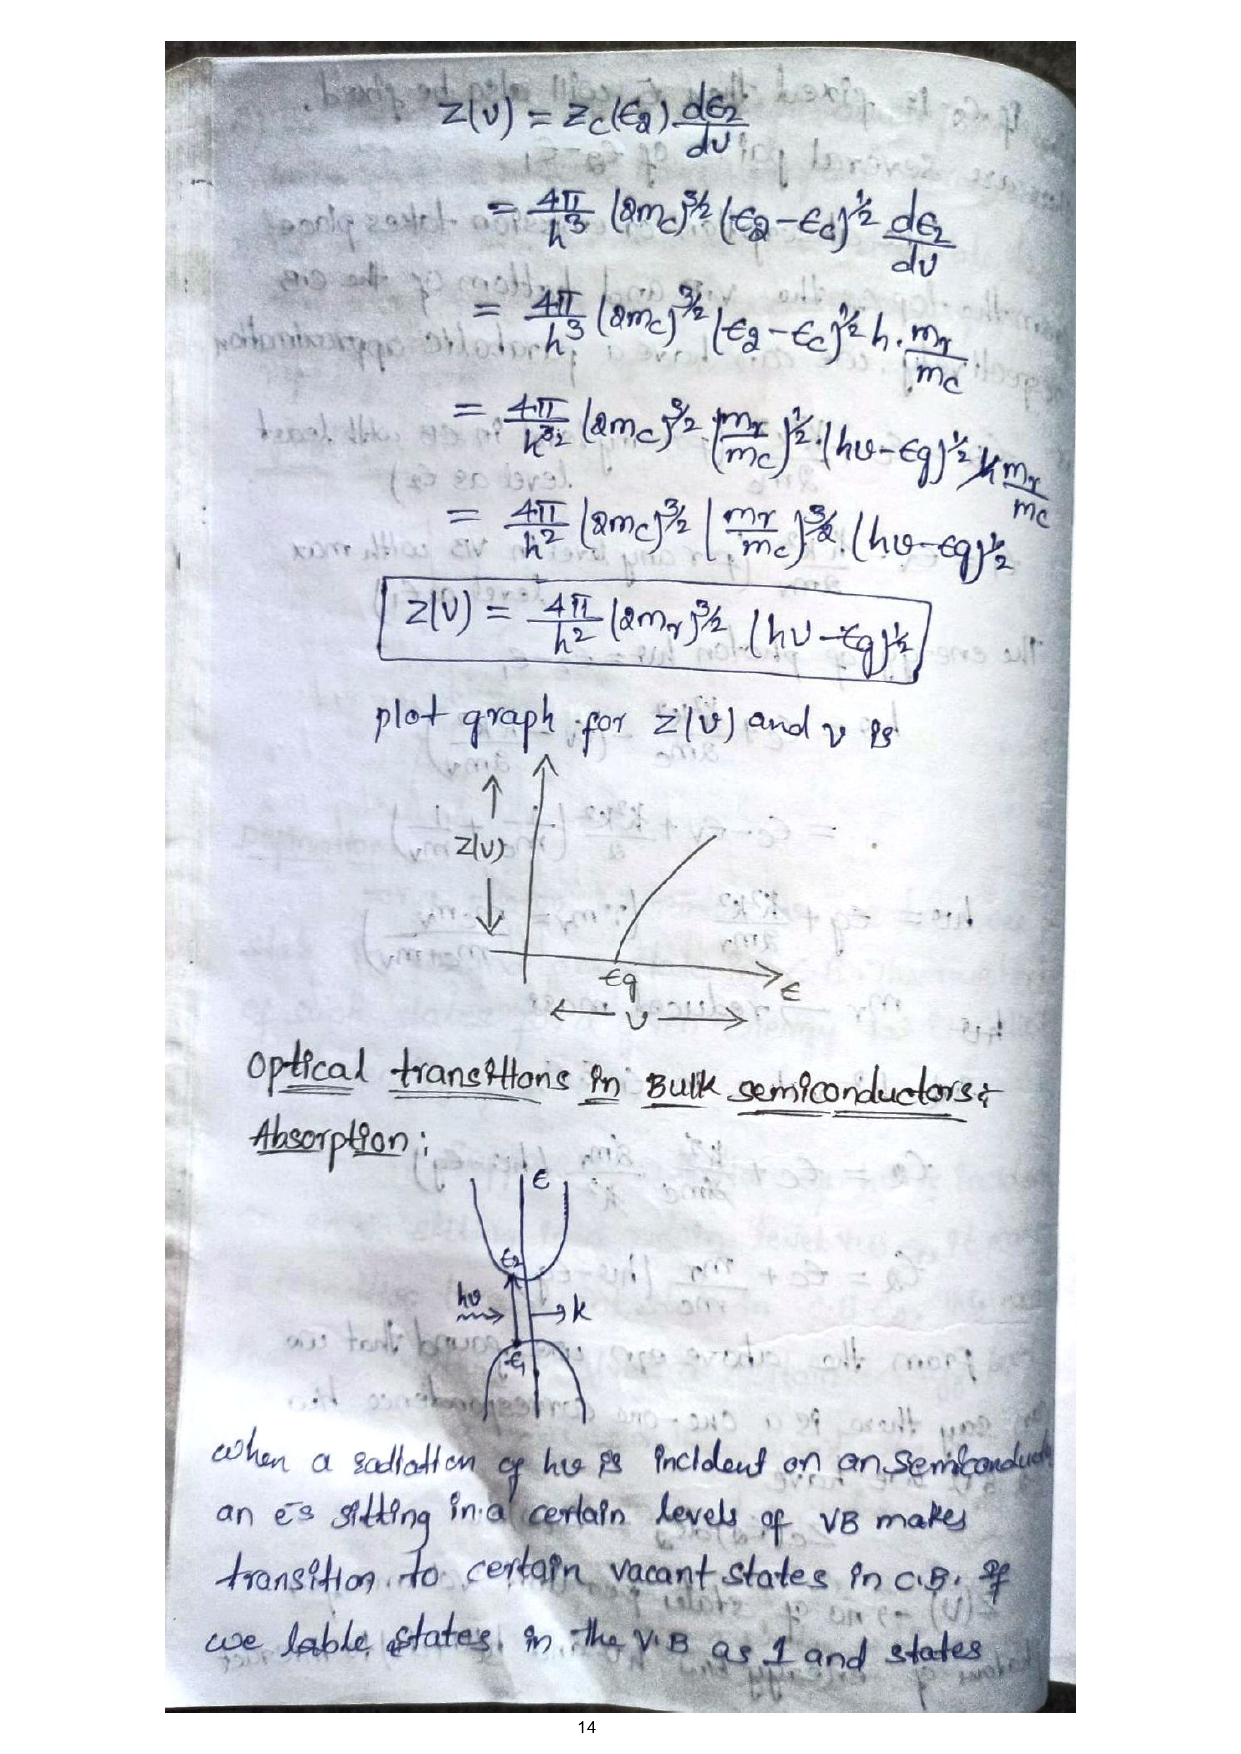 Z(ν) = Zc(ϵ2) dϵ2/dν
= 4π/h³ (2mc)^3/2 (ϵ2 − ϵc)^1/2 dϵ2/dν
= 4π/h³ (2mc)^3/2 (ϵ2 − ϵc)^1/2 h · mr/mc
= 4π/h² (2mc)^3/2 (mr/mc)^1/2 · (hν − ϵg)^1/2 mr/mc
= 4π/h² (2mc)^3/2 (mr/mc)^3/2 · (hν − ϵg)^1/2
Z(ν) = 4π/h² (2mr)^3/2 (hν − ϵg)^1/2
plot graph for Z(ν) and ν is
Z(ν)
ϵg
ϵ
ν
Optical transitions in Bulk semiconductors:
Absorption:
ϵ
ϵ2
hν
k
ϵ1
when a radiation of hν is incident on an semiconduct
an e⁻s sitting in a certain levels of VB makes
transition to certain vacant states in C.B. If
we lable states in the V.B as 1 and states
14